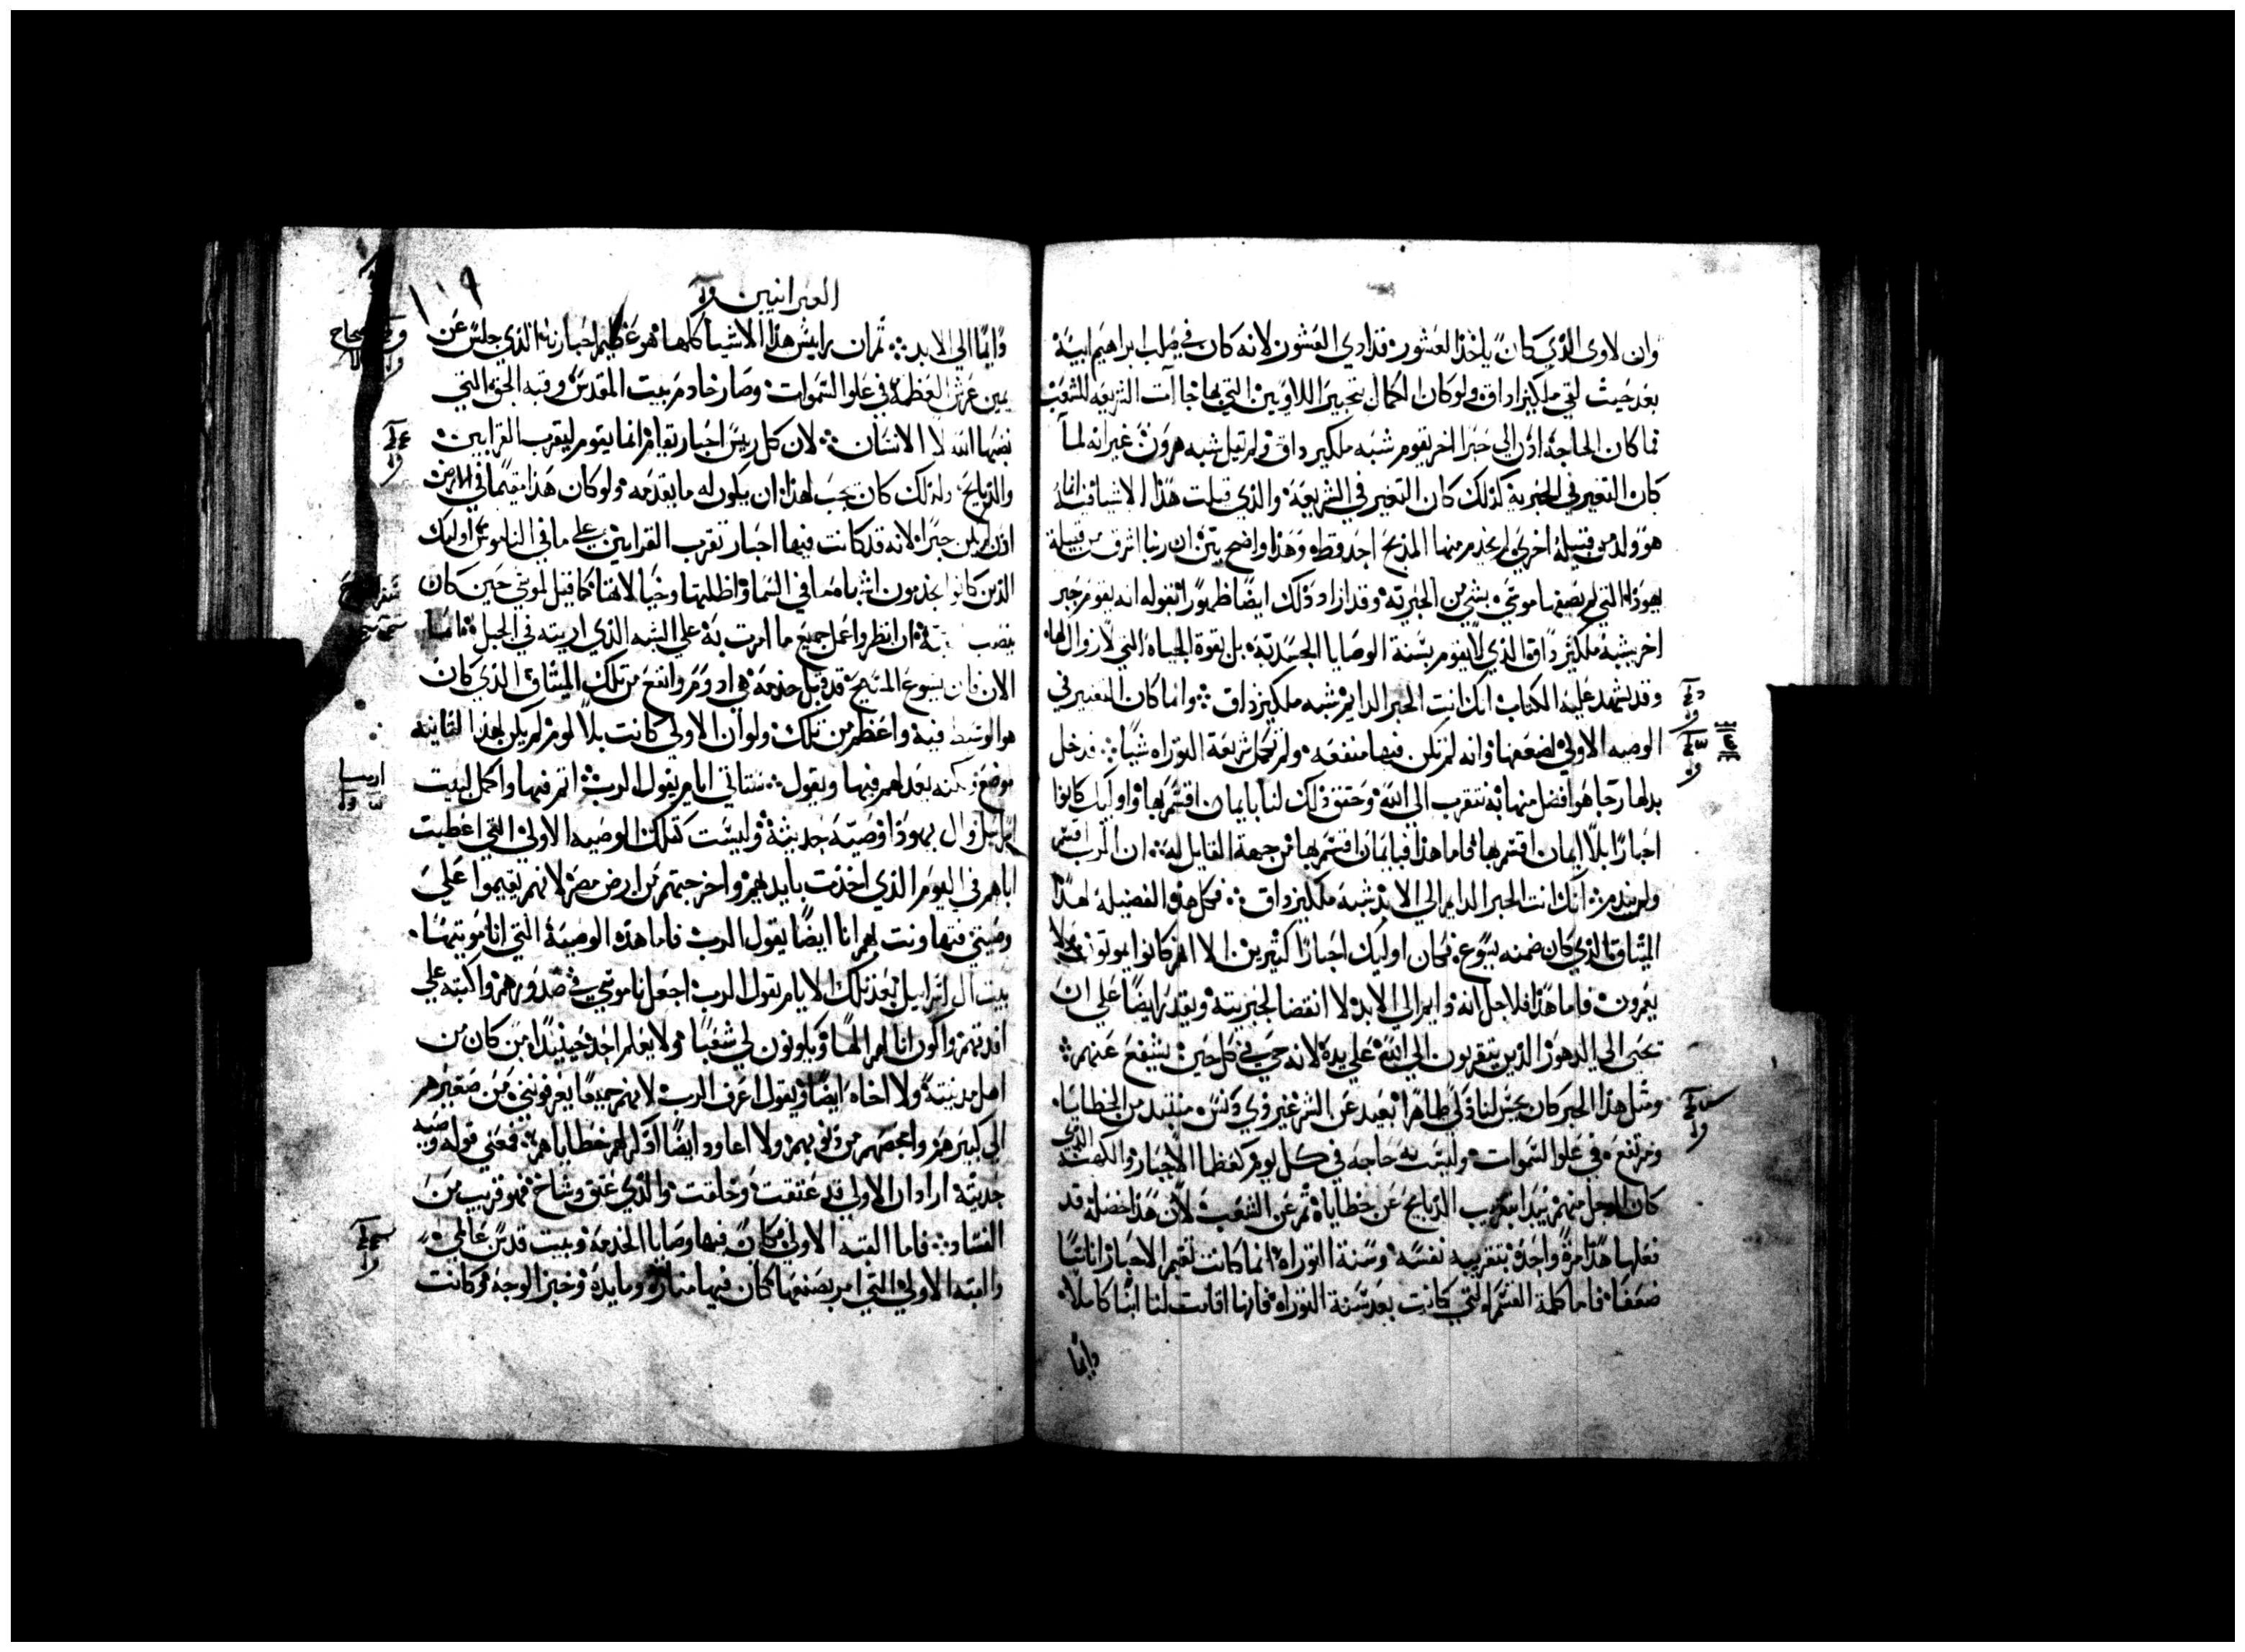 وان لاوى الذي كان ياخذ العشور قد ادي العشور لانه كان في صلب ابراهيم ابيه
بعد حيث لقي ملكيزاداق ولو كان الكمال بتحبير اللاويين التي بها جاات الشريعه للشعب
فما كان الحاجه اذن الي حبرا اخر يقوم شبه ملكيزداق ولم تقيل شبه هرون غير انه لما
كان التغير في الحبرية كذلك كان التغير في الشريعة والذي قيلت هذا الاشيا فيه انما
هو ولد من قبيلة اخري لم يخدم منها المذبح احد قط وهذا واضح بين ان ربنا اشرق من قبيلة
يهوذا التي لم يصفها موسي بشي من الحبرية وقد ازاد ذلك ايضا ظهورا بقوله انه يقوم حبر
اخر يشبه ملكيزداق الذي لا يقوم بسنة الوصايا الجسدية بل بقوة الحياه التي لا زوال لها
وقد يشهد عليه الكتاب انك انت الحبر الدايم شبه ملكيزداق وانما كان التغيير في
الوصيه الاولي لضعفها وانه لم تكن فيها منفعه ولم تكمل شريعة التوراه شيا فدخل
بدلها رجا هو افضل منها به نتقرب الي الله وحقق ذلك لنا بايمان اقسم بها واوليك كانوا
احبارا بلا ايمان اقسم بها فاما هذا فبايمان اقسم بها من جهة القايل له ان الرب اقسم
ولن يندم انك انت الحبر الدايم الي الابد شبه ملكيزداق فكل هذه الفضيلة لهذا
الميثاق الذي كان ضمنه يسوع فكان اوليك احبارا كثيرين الا انهم كانوا يموتون فلا
يعمرون فاما هذا فلاجل انه دايم الي الابد لا انقضا لحبريته ويقدر ايضا علي ان
يحيي الي الدهور الذين يتقربون الي الله علي يده لانه حي في كل حين يشفع عنهم
ومثل هذا الحبر كان يحسن لنا زكي طاهرا بعيد عن الشر غير ذي دنس مبتعد من الخطايا
ومرتفعه في علو السموات وليست به حاجه في كل يوم كعظما الاحبار والكهنة الذي
كان الرجل منهم يبدا بتقريب الذبايح عن خطاياه ثم عن الشعب لان هذا خصله قد
فعلها هذا مرة واحدة بتقريبه نفسه وسنة التوراة انما كانت تقيم الاحبار اناسا
ضعفا فاما كلمة القسم التي كانت بعد سنة التوراه فانها اقامت لنا ابنا كاملا
دايما
العبرانيين
١٠٩
دايما الي الابد ثم ان رايس هذا الاشيا كلها هو عظيم احبارنا الذي جلس عن
يمين عرش العظمة في علو السموات وصار خادم بيت المقدس وقبه الحق التي
نصبها الله لا الانسان لان كل ريس احبار يقام انما يقوم ليقرب القرابين
والذبايح ولذلك كان يجب لهذا ان يكون له ما يقدمه ولو كان هذا مقيما في الارض
اذن لم يكن حبرا لانه قد كانت فيها احبار تقرب القرابين علي ما في الناموس اوليك
الذين كانوا يخدمون اشباه ما في السما واظلتها وخيالاتها كما قيل لموسي حين كان
ينصب ان انظر واعمل جميع ما امرت به علي الشبه الذي اريته في الجبل فاما
الان فان يسوع المسيح قد قبل خدمه هي ادوم وانفع من تلك الميثاق الذي كان
هو الوسيط فيه واعظم من تلك ولو ان الاولي كانت بلا لوم لم يكن لهذا الثانية
موضع ولكنه يعدلهم فيها ويقول ستاتي ايام يقول الرب اتم فيها واكمل لبيت
اسراييل وال يهوذا وصيه حديثة وليست كتلك الوصيه الاولي التي اعطيت
اباهم في اليوم الذي اخذت بايديهم واخرجتهم من ارض مصر لانهم لم يقيموا علي
وصيتي فتهاونت بهم انا ايضا يقول الرب فاما هذه الوصية التي انا موتيها
بيت ال اسراييل بعد تلك الايام يقول الرب اجعل ناموسي في صدورهم واكتبه علي
افدتهم واكون انا لهم الها ويكونون لي شعبا ولا يعلم احد حينيذا من كان من
اهل مدينته ولا اخاه ايضا ويقول اعرف الرب لانهم جميعا يعرفونني من صغيرهم
الي كبيرهم واعصهم من ذنوبهم ولا اعاود ايضا اذكر لهم خطاياهم فمعني قوله وصيه
جديتة اراد ان الاولي قد عتقت وخلقت والذي عتق وشاخ فهو قريب من
الفساد فاما القبه الاولي فكان فيها وصايا الخدمة وبيت قدس عالمي
والقبه الاولي التي امر بصنعها كان فيها منارة ومايدة وخبز الوجه وكانت